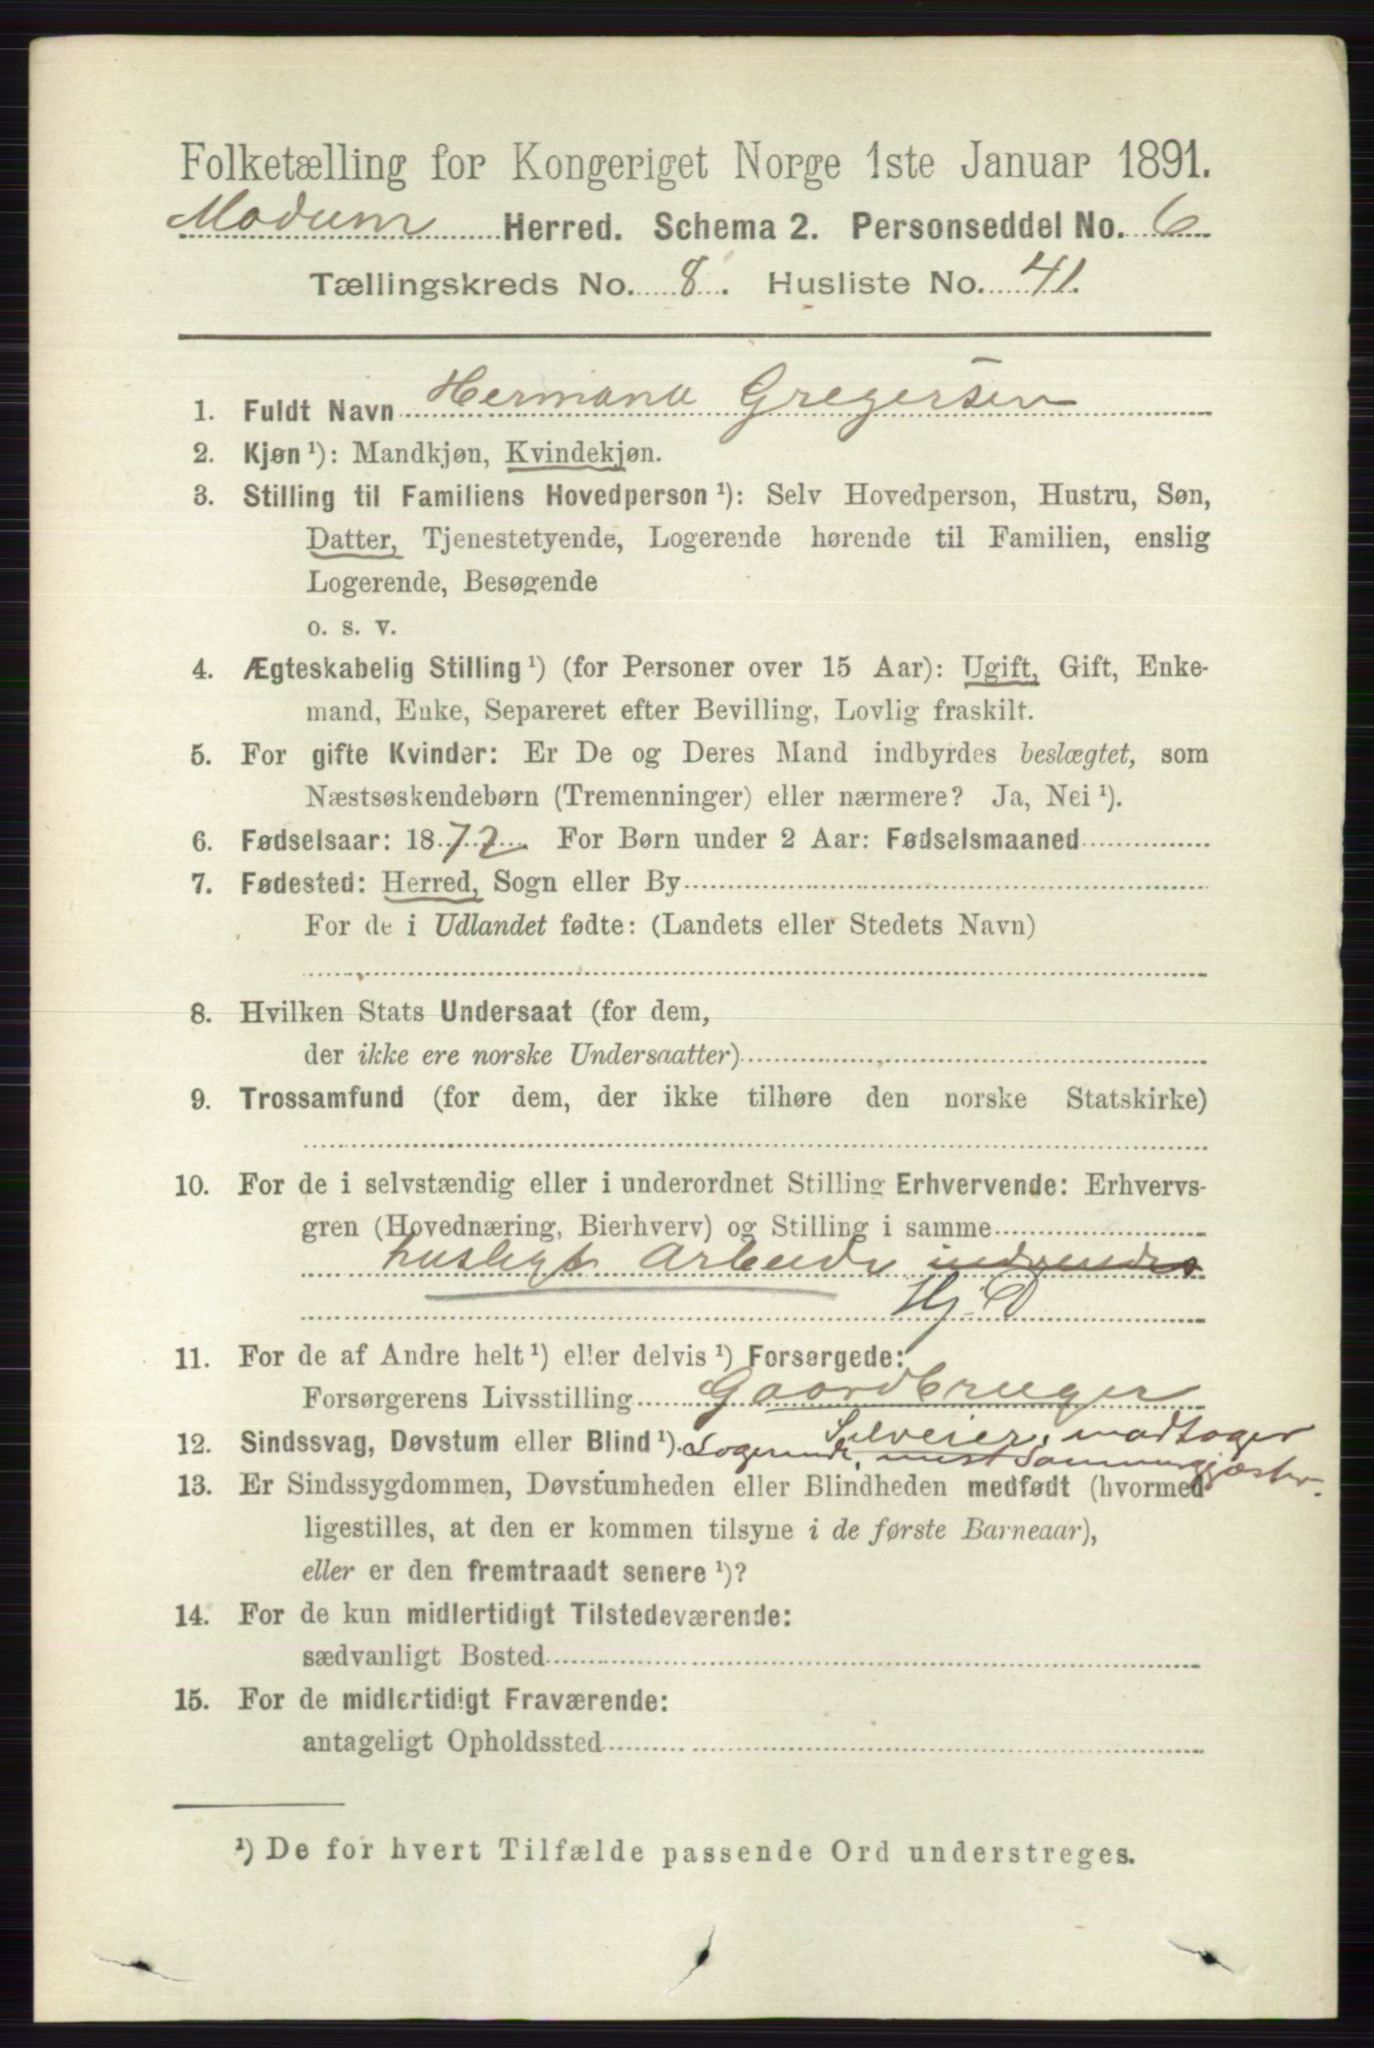 Folketælling for Kongeriget Norge 1ste Januar 1891.
Modum Herred. Schema 2. Personseddel No. 6
Tællingskreds No. 8. Husliste No. 41.
1. Fuldt Navn Hermana Gregersen
2. Kjøn ¹): Mandkjøn, Kvindekjøn.
3. Stilling til Familiens Hovedperson ¹): Selv Hovedperson, Hustru, Søn,
Datter, Tjenestetyende, Logerende hørende til Familien, enslig
Logerende, Besøgende
o. s. v.
4. Ægteskabelig Stilling ¹) (for Personer over 15 Aar): Ugift, Gift, Enke-
mand, Enke, Separeret efter Bevilling, Lovlig fraskilt.
5. For gifte Kvinder: Er De og Deres Mand indbyrdes beslægtet, som
Næstsøskendebørn (Tremenninger) eller nærmere? Ja, Nei ¹).
6. Fødselsaar: 1872 For Børn under 2 Aar: Fødselsmaaned
7. Fødested: Herred, Sogn eller By
For de i Udlandet fødte: (Landets eller Stedets Navn)
8. Hvilken Stats Undersaat (for dem,
der ikke ere norske Undersaatter)
9. Trossamfund (for dem, der ikke tilhøre den norske Statskirke)
10. For de i selvstændig eller i underordnet Stilling Erhvervende: Erhvervs-
gren (Hovednæring, Bierhverv) og Stilling i samme
husligt Arbeide
Hj. D
11. For de af Andre helt ¹) eller delvis ¹) Forsørgede:
Forsørgerens Livsstilling Gaardbruger
Selveier, modtager
12. Sindssvag, Døvstum eller Blind ¹). Logerende, mest Sommergjæster.
13. Er Sindssygdommen, Døvstumheden eller Blindheden medfødt (hvormed
ligestilles, at den er kommen tilsyne i de første Barneaar),
eller er den fremtraadt senere ¹)?
14. For de kun midlertidigt Tilstedeværende:
sædvanligt Bosted
15. For de midlertidigt Fraværende:
antageligt Opholdssted
¹) De for hvert Tilfælde passende Ord understreges.